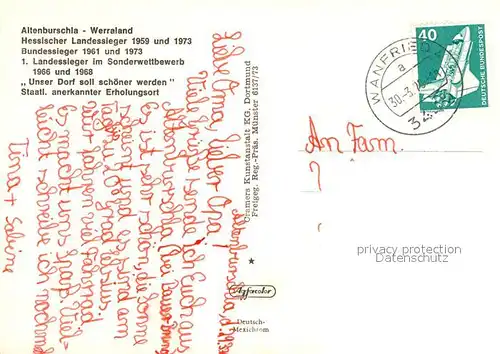 Altenburschla - Werraland
Hessischer Landessieger 1959 und 1973
Bundessieger 1961 und 1973
1. Landessieger im Sonderwettbewerb
1966 und 1968
„Unser Dorf soll schöner werden"
Staatl. anerkannter Erholungsort
Cramers Kunstanstalt KG, Dortmund
Freigeg. Reg.-Präs. Münster 6137/73
Agfacolor
Deutsch-
Mexichrom
Altenburschla, d.
Liebe Oma, lieber Opa!
Viele Grüße sende ich Euch aus
Altenburschla
Es ist sehr schön, die Sonne
scheint und es sind
wir fahren viel Fahrrad
Es macht uns Spaß. Viel-
leicht schreibe ich nochmal
Tina + Sabine
WANFRIED
a
30.-3.
40
DEUTSCHE BUNDESPOST
An Fam.
privacy protection
Commercial use not permitted